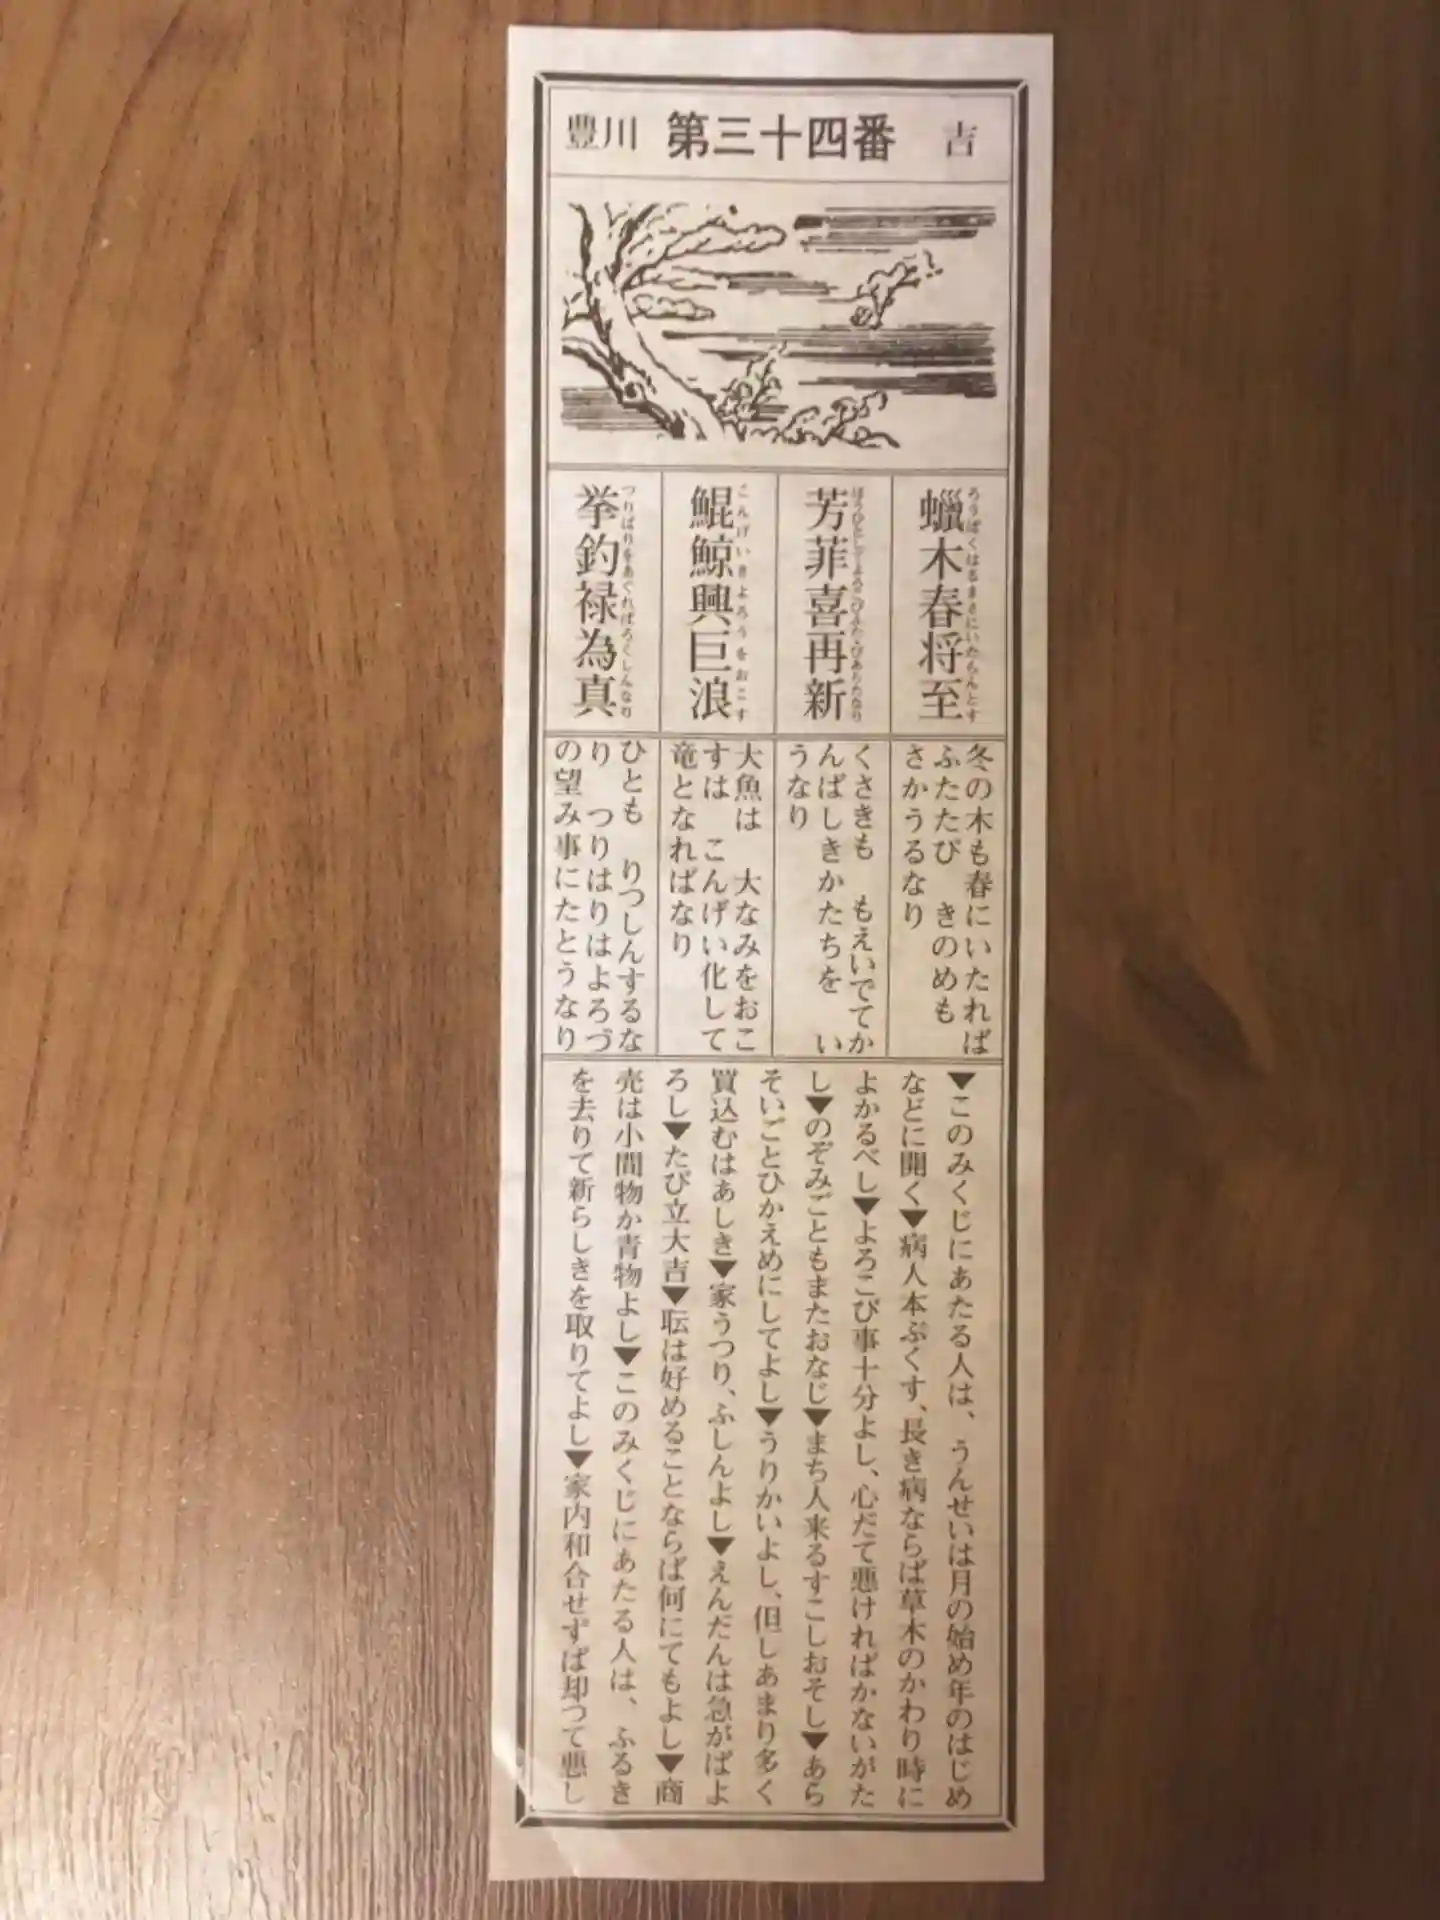 豊川 第三十四番 吉
蠟木春将至
ろうぼくはるまさにいたらんとす
芳菲喜再新
ほうひとしてよろこびふたゝびあらたなり
鯤鯨興巨浪
こんげいきよろうをおこす
挙釣禄為真
つりばりをあぐればろくしんなり
冬の木も春にいたれば
ふたたび きのめも
さかうるなり
くさきも もえいでてか
んばしきかたちを い
うなり
大魚は 大なみをおこ
すは こんげい化して
竜となればなり
ひとも りつしんするな
り つりはりはよろづ
の望み事にたとうなり
▼このみくじにあたる人は、うんせいは月の始め年のはじめ
などに開く▼病人本ぷくす、長き病ならば草木のかわり時に
よかるべし▼よろこび事十分よし、心だて悪ければかないがた
し▼のぞみごともまたおなじ▼まち人来るすこしおそし▼あら
そいごとひかえめにしてよし▼うりかいよし、但しあまり多く
買込むはあしき▼家うつり、ふしんよし▼えんだんは急がばよ
ろし▼たび立大吉▼耘は好めることならば何にてもよし▼商
売は小間物か青物よし▼このみくじにあたる人は、ふるき
を去りて新らしきを取りてよし▼家内和合せずば却つて悪し